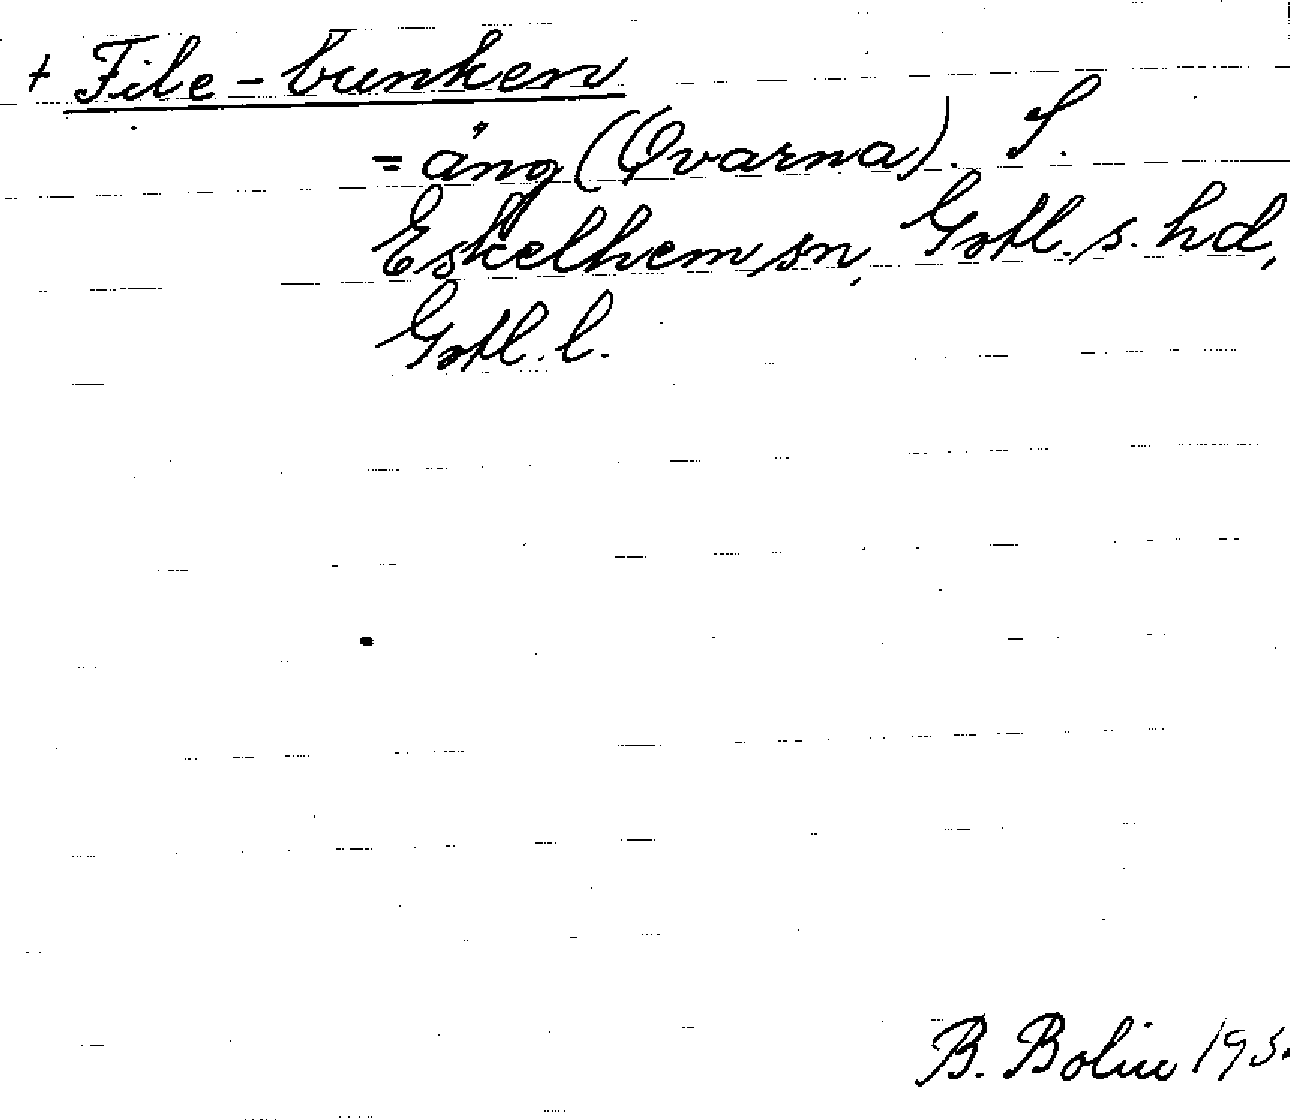 + File-bunken
= äng (Qvarna). S.
Eskelhem sn, Gotl. s. hd,
Gotl. l.
B. Bolin 195